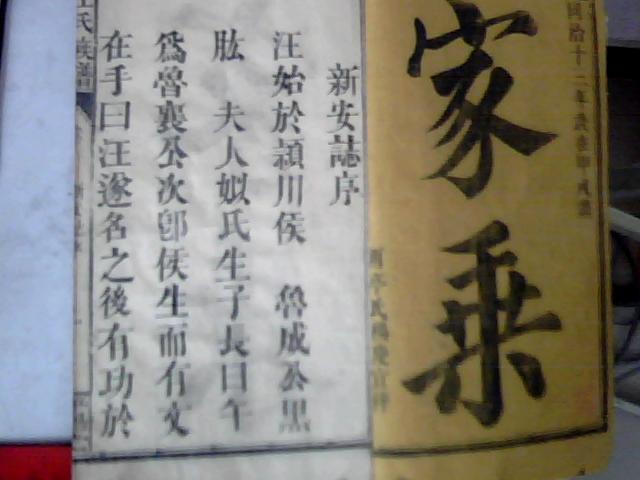 同治十二年歲在
家乗
新安誌序
汪始於潁川侯 魯成公黑
肱 夫人姒氏生子長曰午
爲魯襄公次郎侯生而有文
在手曰汪遂名之後有功於
汪氏族譜